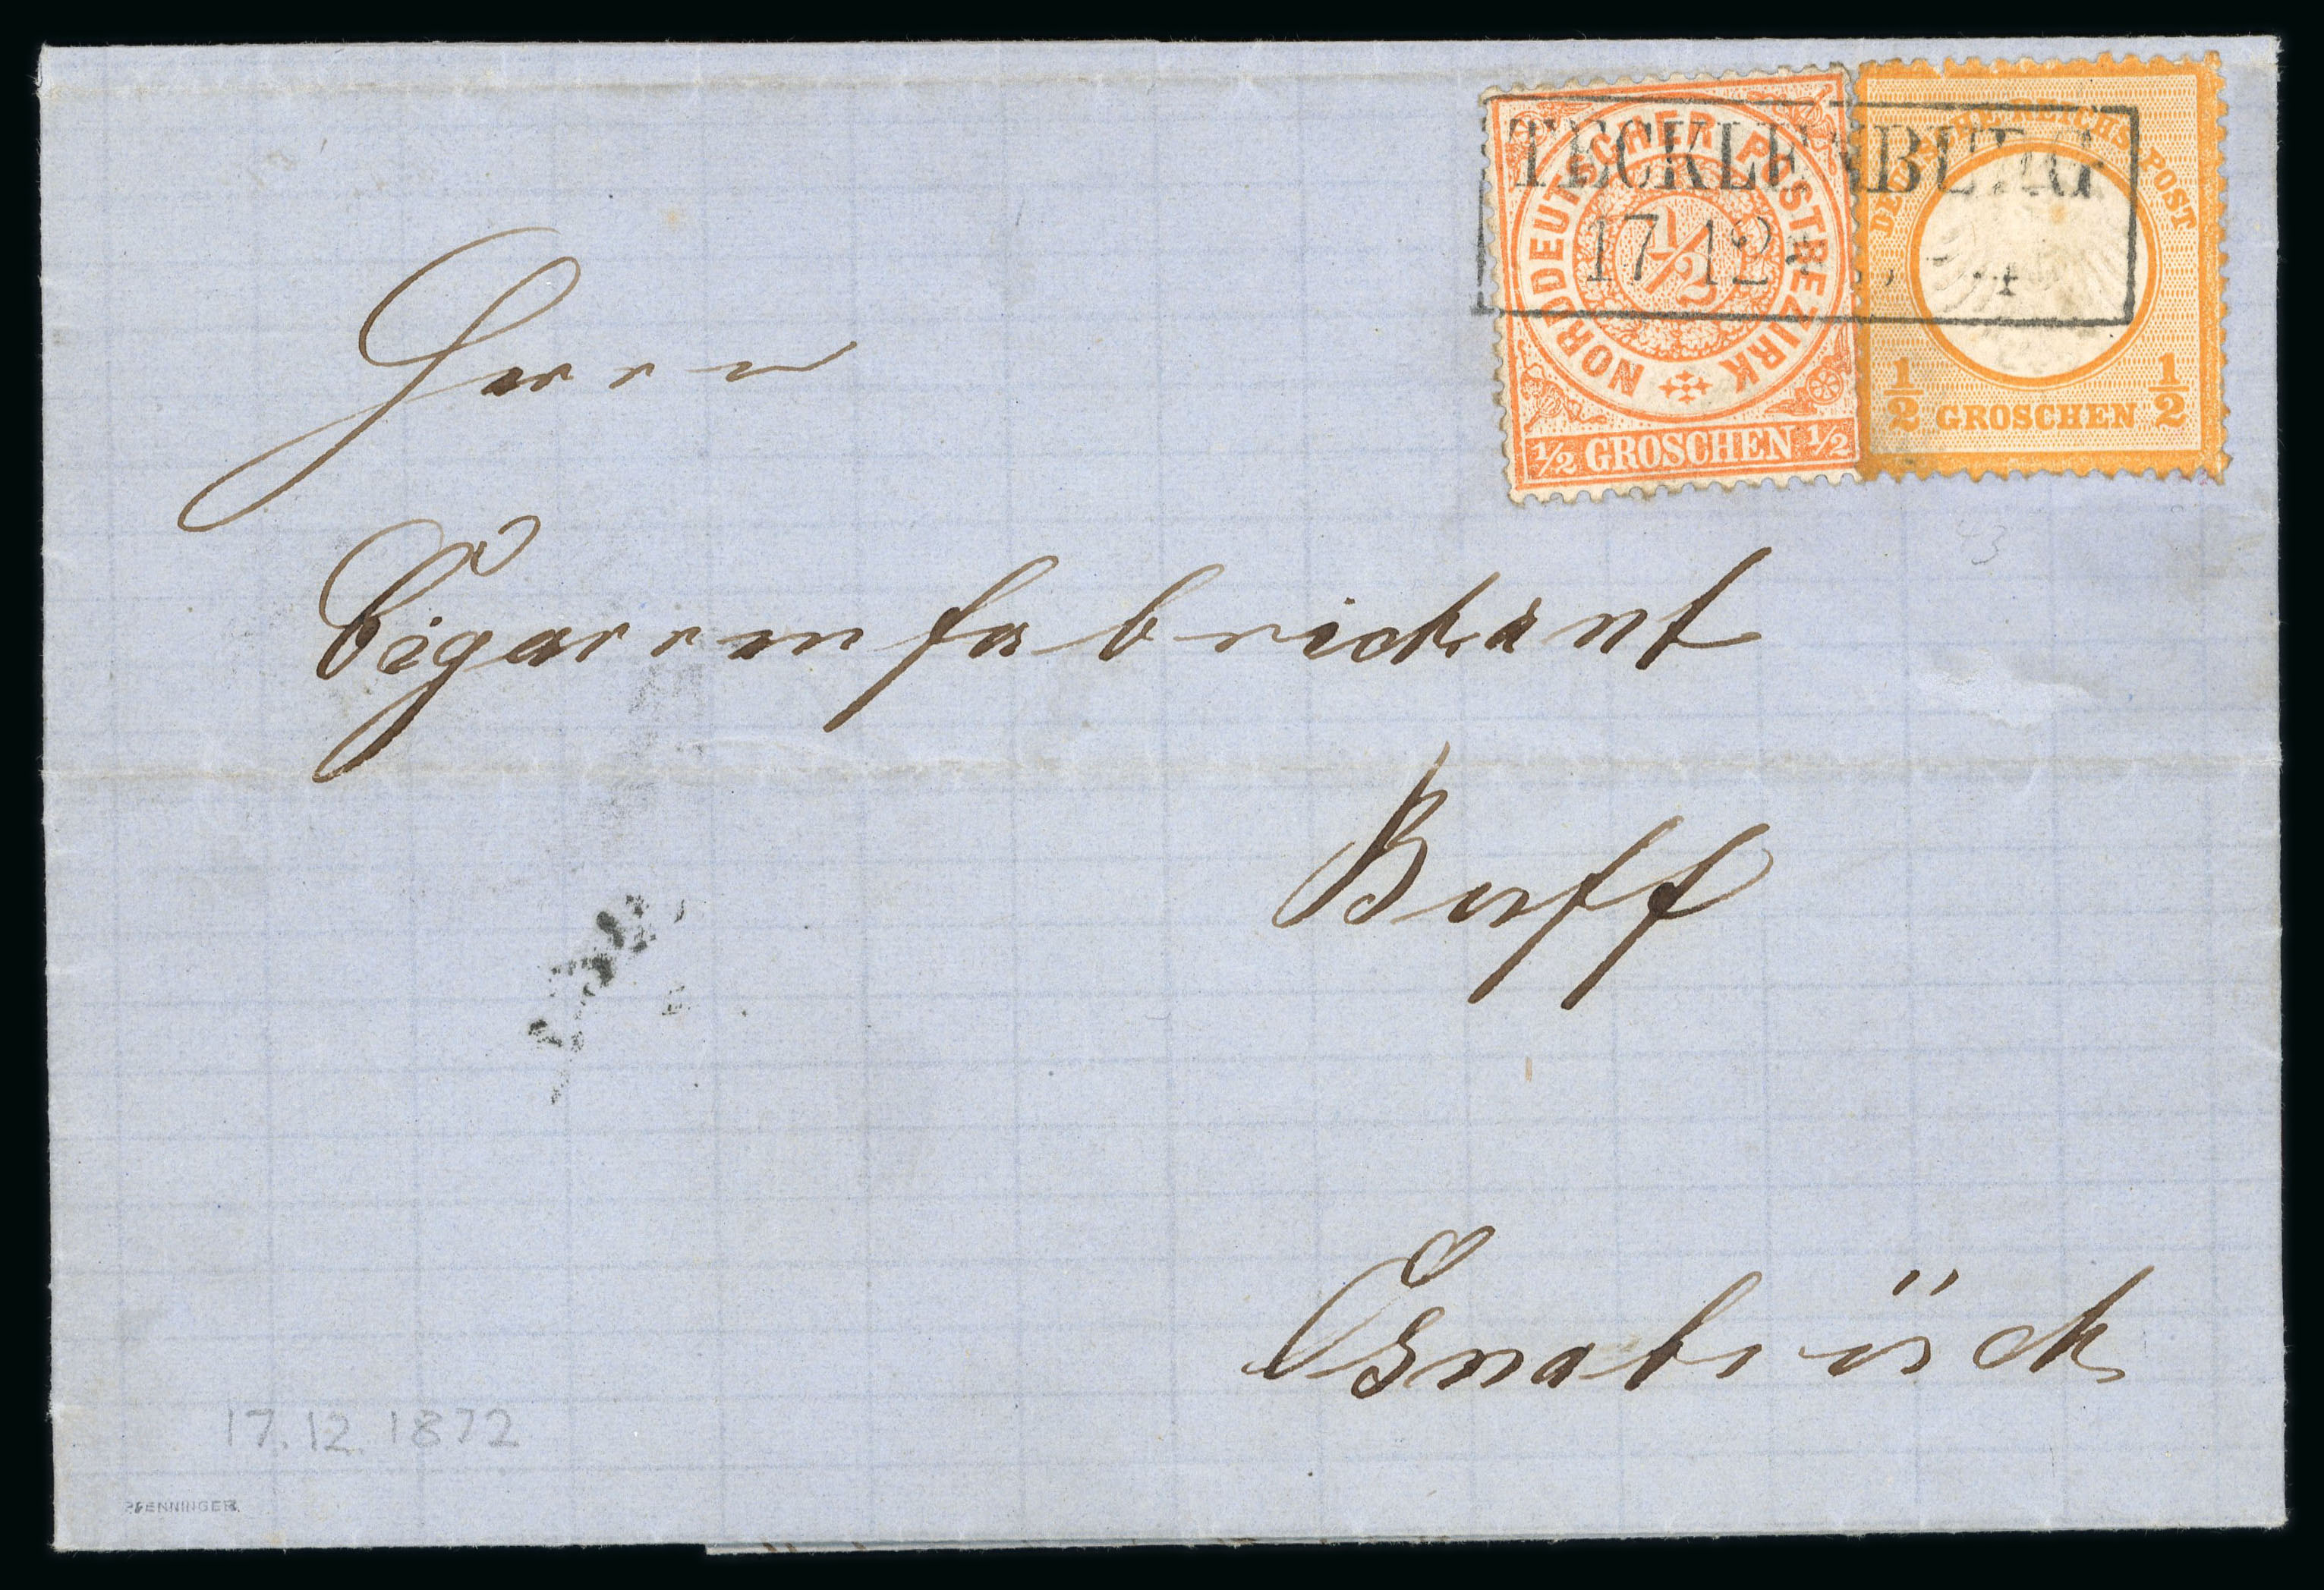 NORDDEUTSCHER POSTBEZIRK
1/2
1/2 GROSCHEN 1/2
DEUTSCHE REICHS POST
1/2 GROSCHEN 1/2
TECKLENBURG
17 12 *
Herrn
Cigarrenfabrickant
Buff
Osnabrück
43
17.12.1872
PFENNINGER